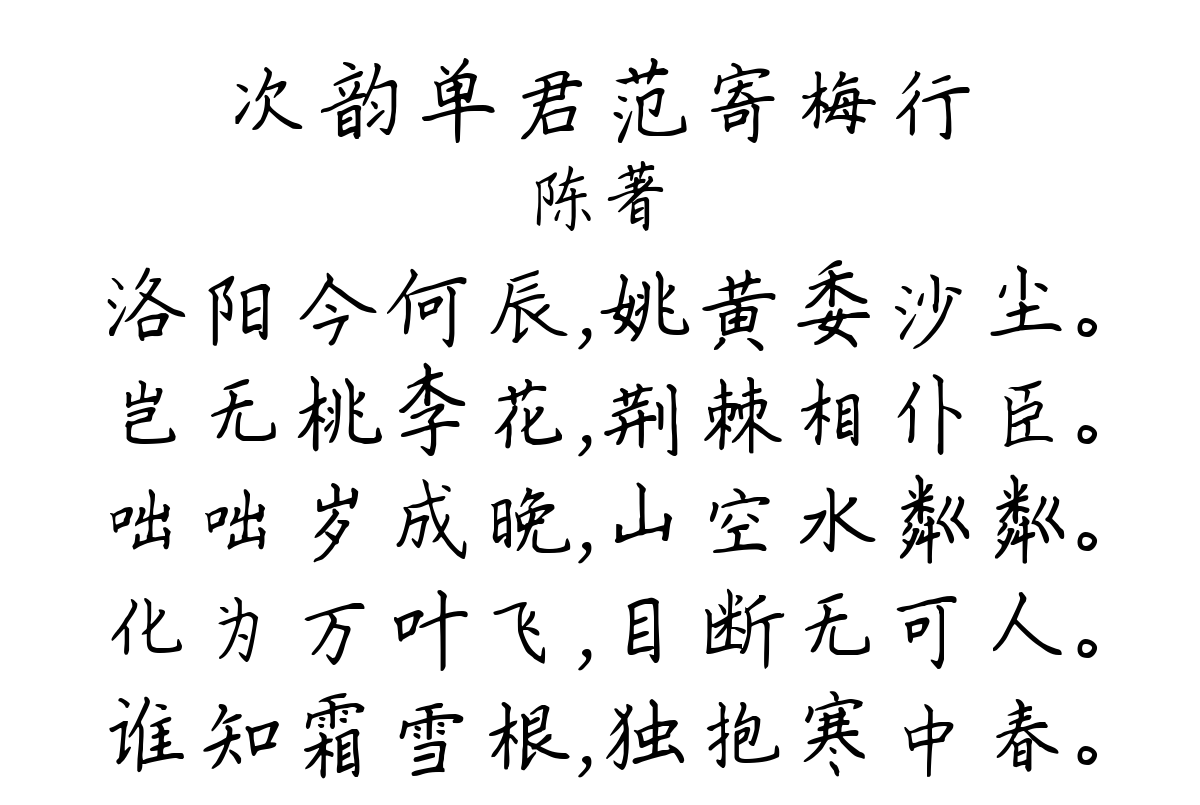 次韵单君范寄梅行
陈著
洛阳今何辰,姚黄委沙尘。
岂无桃李花,荆棘相仆臣。
咄咄岁成晚,山空水粼粼。
化为万叶飞,目断无可人。
谁知霜雪根,独抱寒中春。